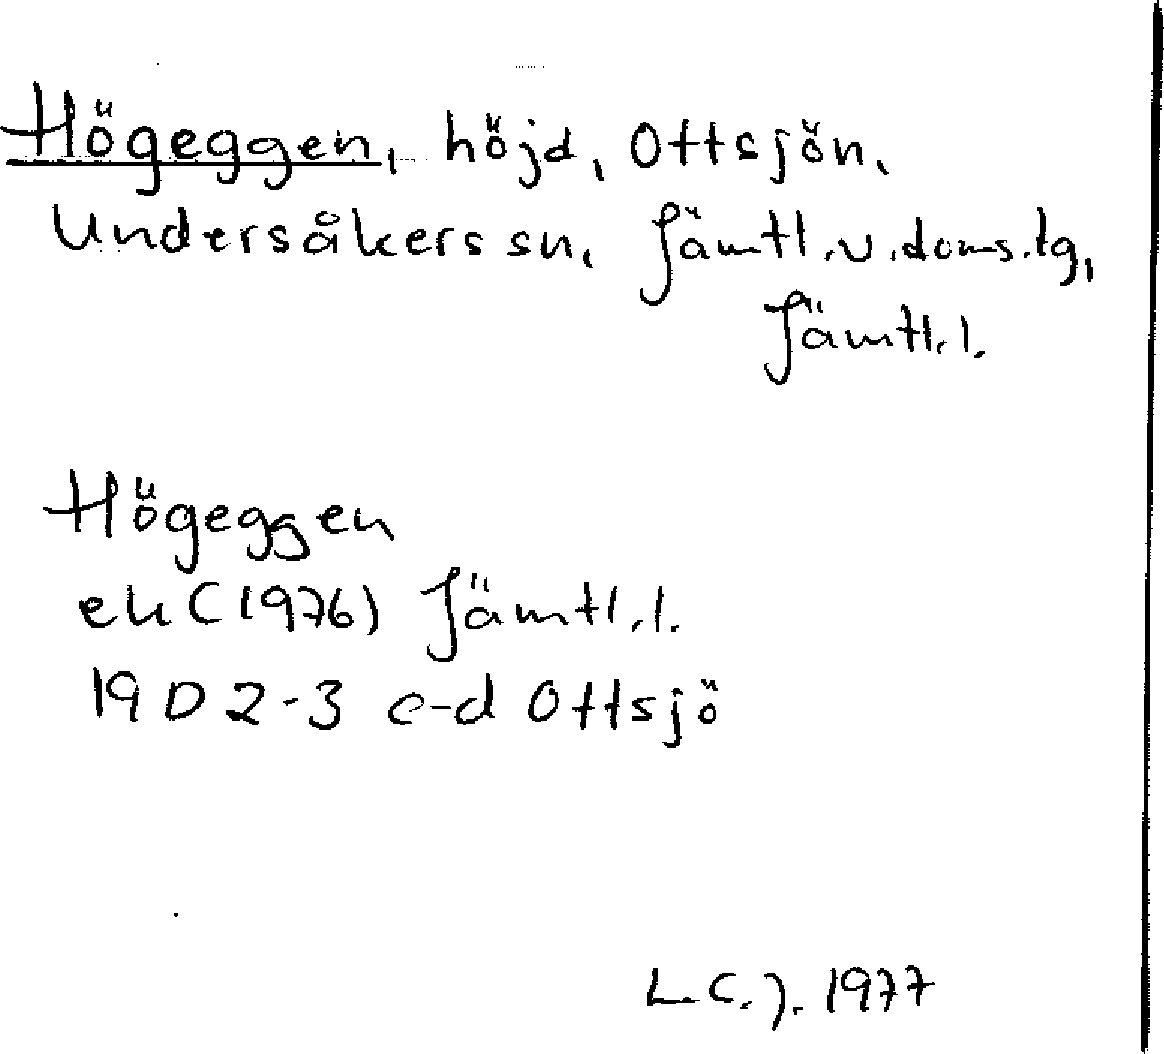 Högeggen, höjd, Ottsjön,
Undersåkers sn, Jämtl.v.doms.lg,
Jämtl.l.
Högeggen
ek (1976) Jämtl.l.
19 D 2-3 c-d Ottsjö
L.C.J. 1977